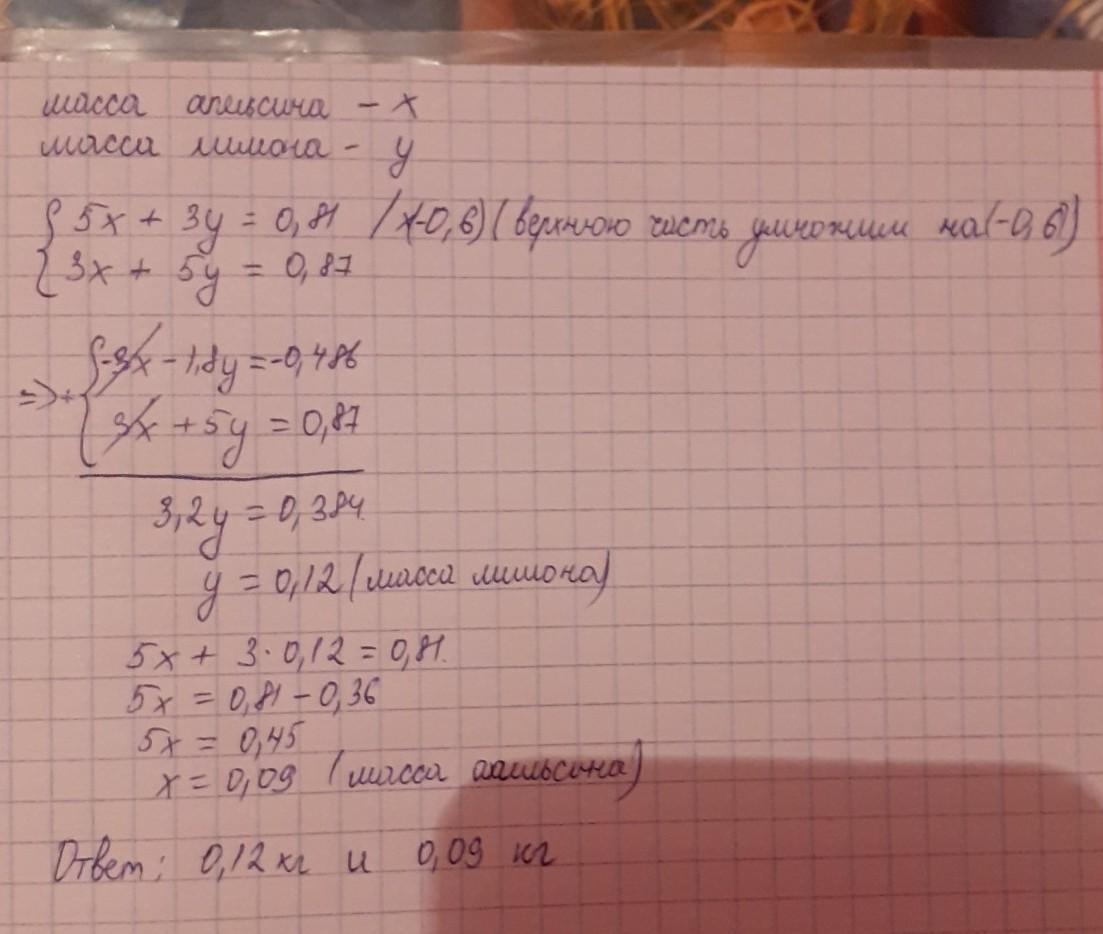 масса апельсина - x
масса лимона - y
{ 5x + 3y = 0,81 /×(-0,6) (верхнюю часть умножим на (-0,6))
{ 3x + 5y = 0,87
=> + { -3x - 1,8y = -0,486
{ 3x + 5y = 0,87
3,2y = 0,384
y = 0,12 (масса лимона)
5x + 3·0,12 = 0,81
5x = 0,81 - 0,36
5x = 0,45
x = 0,09 (масса апельсина)
Ответ: 0,12 кг и 0,09 кг